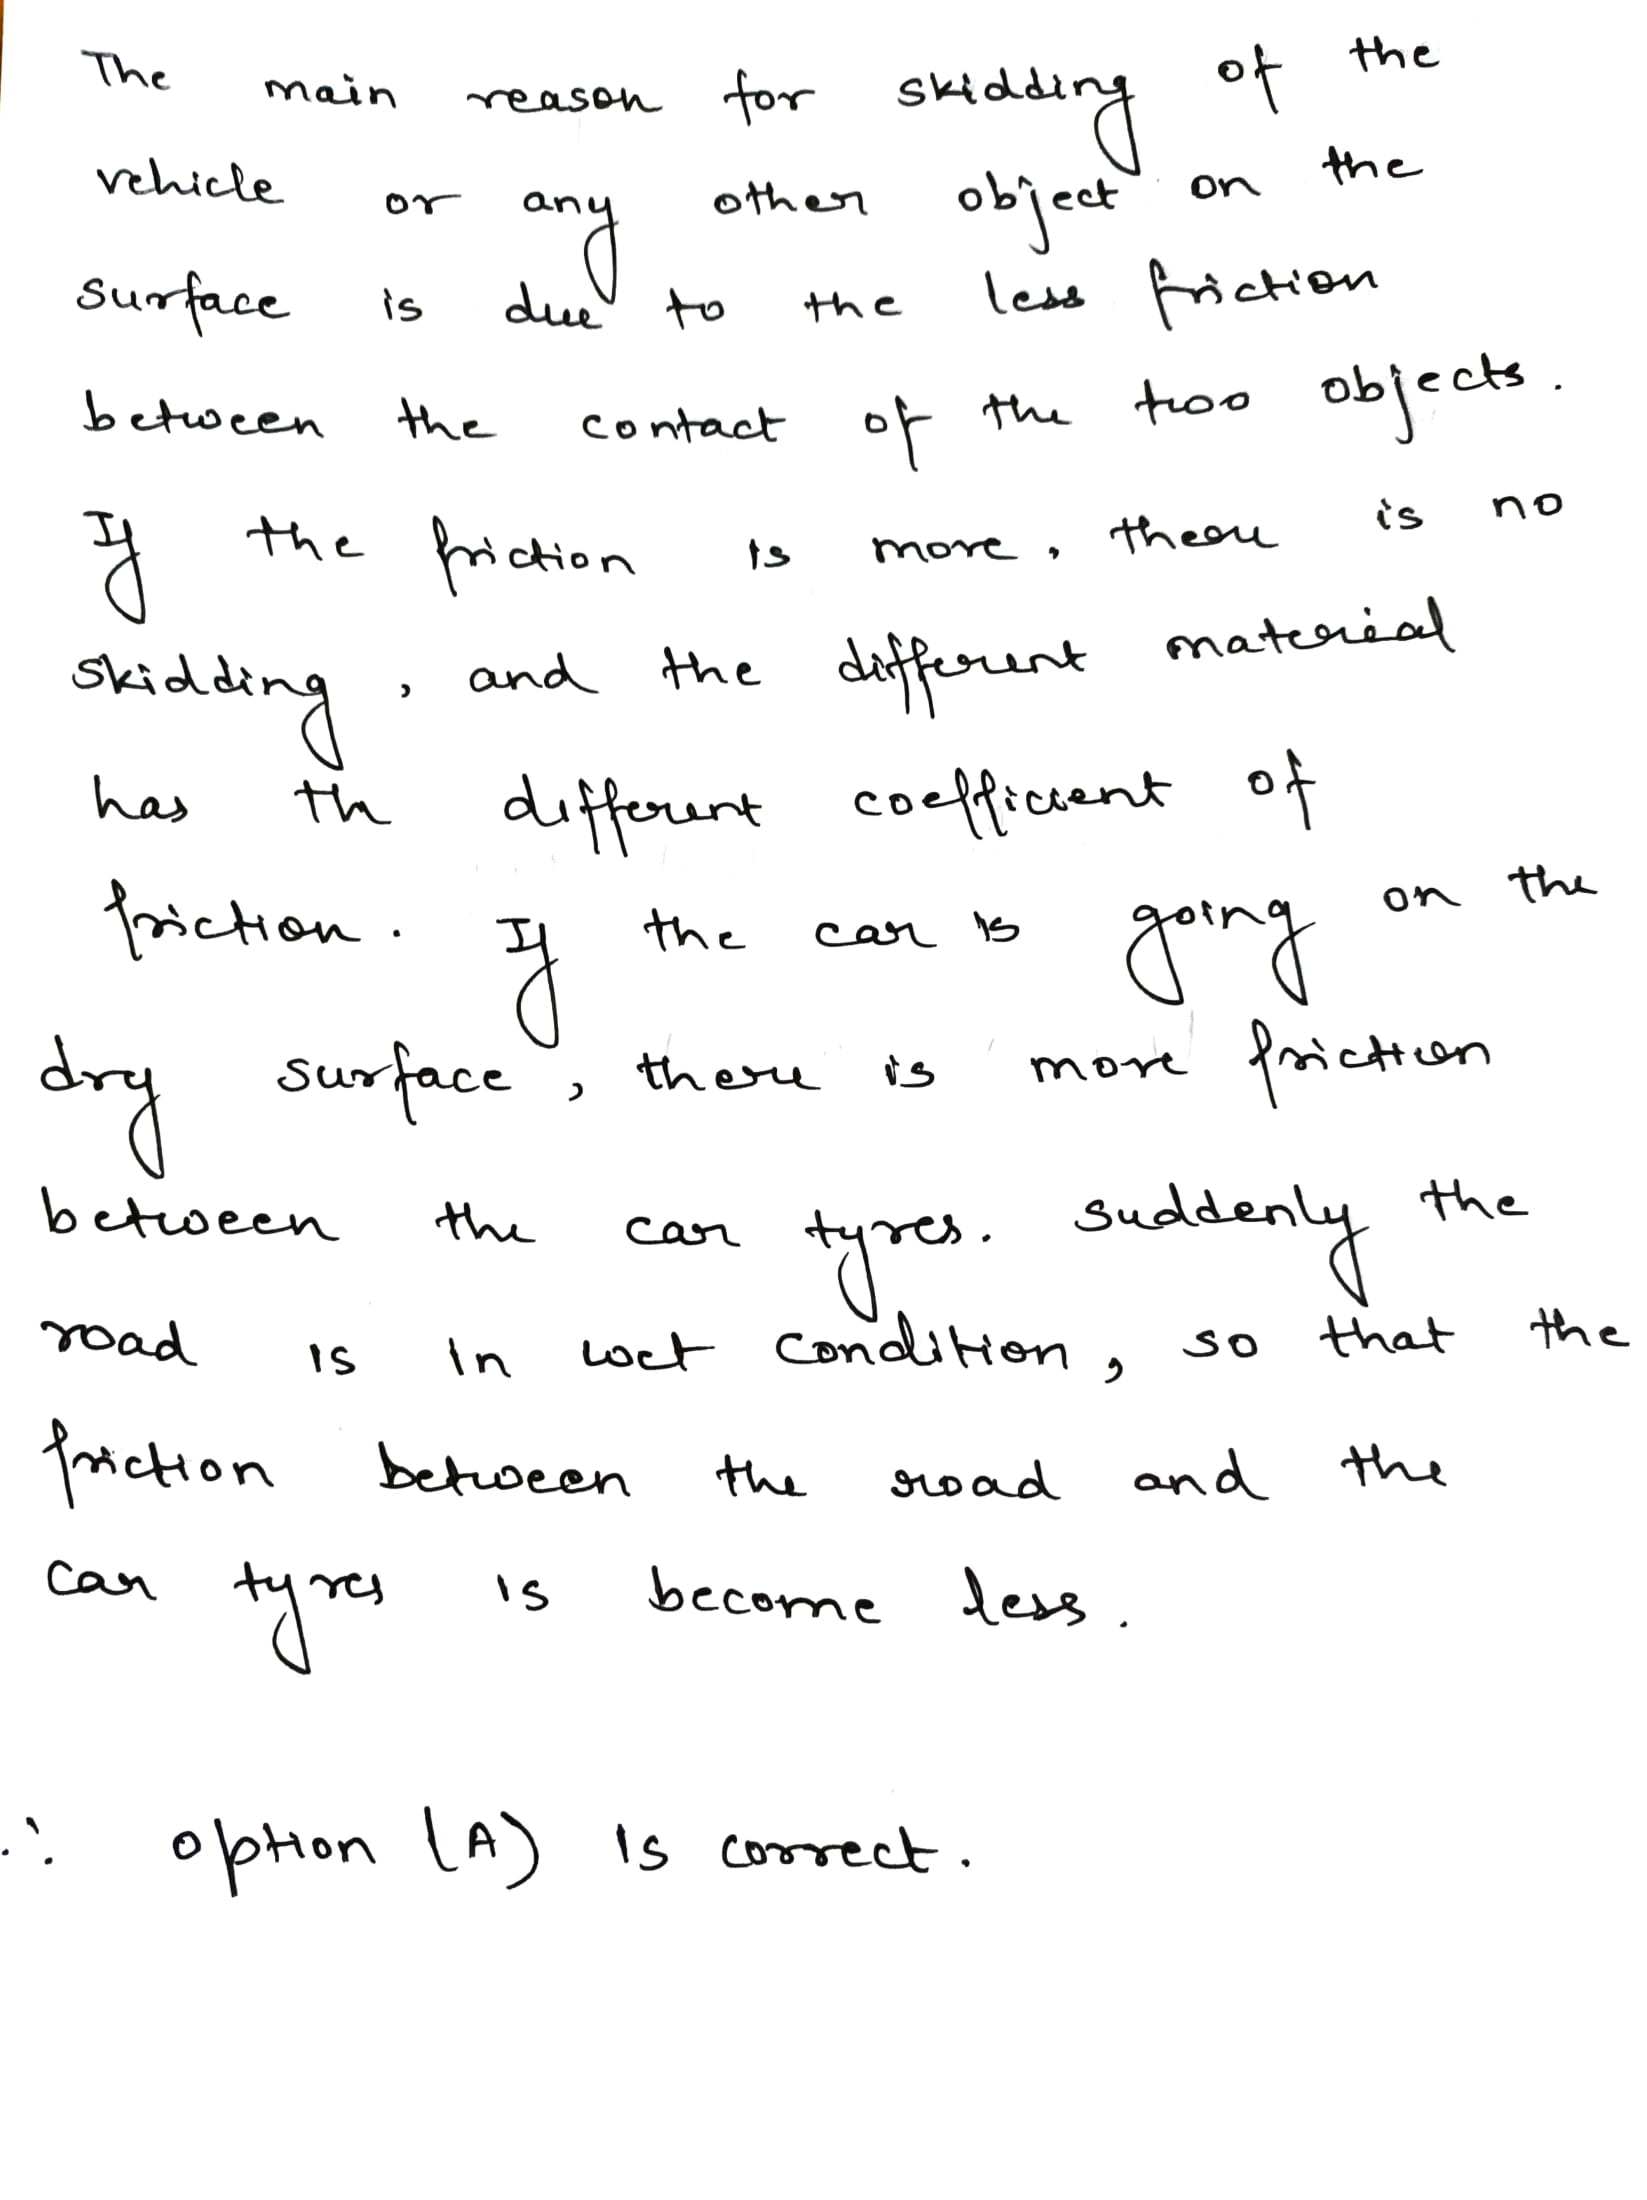 The main reason for skidding of the
vehicle or any other object on the
surface is due to the less friction
between the contact of the two objects.
If the friction is more, there is no
skidding, and the different material
has th different coefficient of
friction. If the car is going on the
dry surface, there is more friction
between the car tyres. suddenly the
road is in wet condition, so that the
friction between the road and the
car tyres is become less.
∴ option (A) is correct.